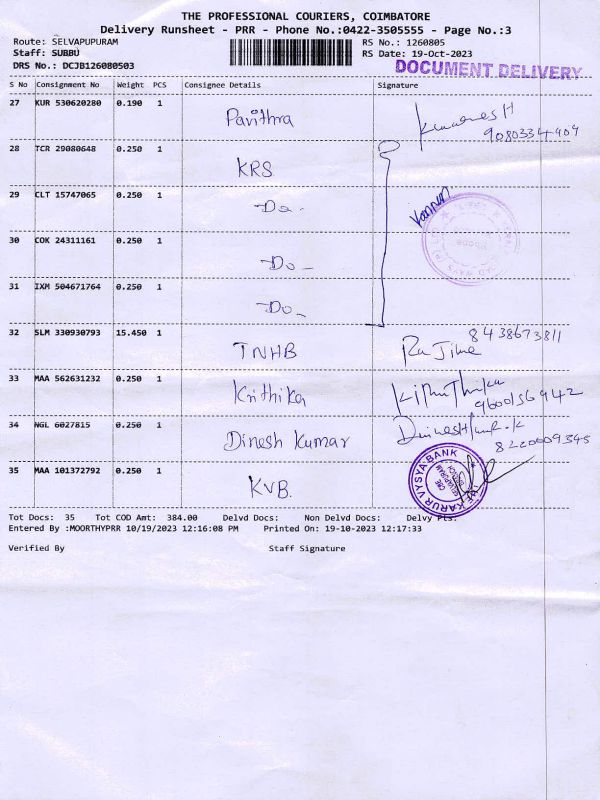 THE PROFESSIONAL COURIERS, COIMBATORE
Delivery Runsheet - PRR - Phone No.:0422-3505555 - Page No.:3
Route: SELVAPUPURAM
RS No.: 1260805
Staff: SUBBU
RS Date: 19-Oct-2023
DRS No.: DCJB126080503
DOCUMENT DELIVERY
S No Consignment No Weight PCS Consignee Details Signature
27 KUR 530620280 0.190 1 Pavithra
9080334404
28 TCR 29080648 0.250 1 KRS
29 CLT 15747065 0.250 1 -Do- Kannan
30 COK 24311161 0.250 1 -Do-
31 IXM 504671764 0.250 1 -Do-
32 SLM 330930793 15.450 1 TNHB 8438673811
33 MAA 562631232 0.250 1 Krithika 9600156942
34 NGL 6027815 0.250 1 Dinesh Kumar 8220009345
35 MAA 101372792 0.250 1 KVB.
THE KARUR VYSYA BANK
Tot Docs: 35 Tot COD Amt: 384.00 Delvd Docs: Non Delvd Docs: Delvy Pts:
Entered By :MOORTHYPRR 10/19/2023 12:16:08 PM Printed On: 19-10-2023 12:17:33
Verified By Staff Signature